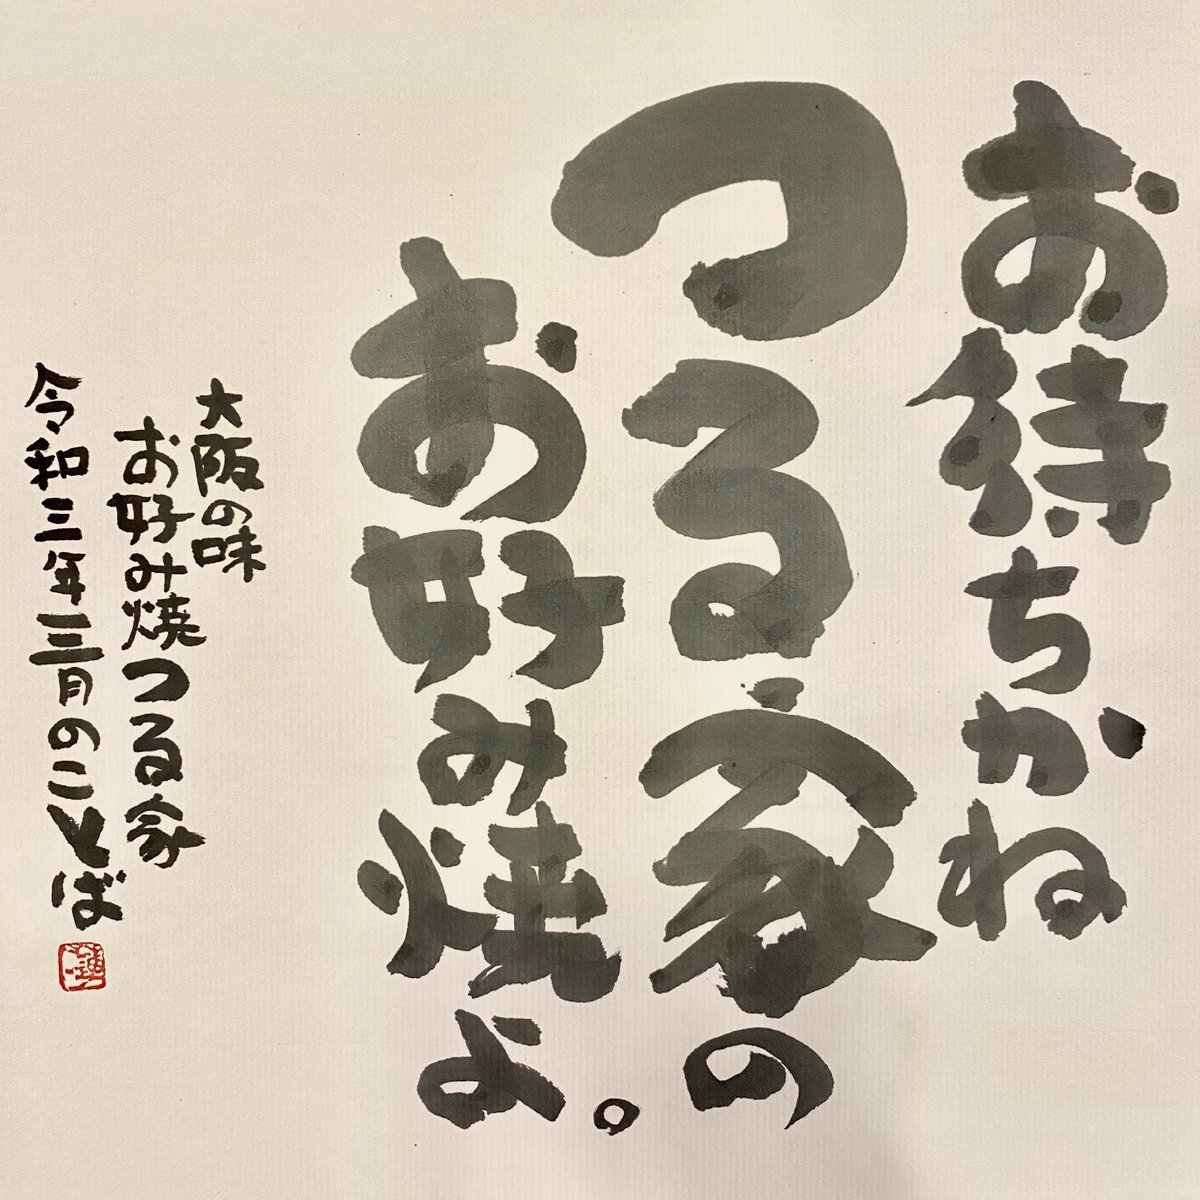 お待ちかね
つる家の
お好み焼よ。
大阪の味
お好み焼つる家
令和三年三月のことば